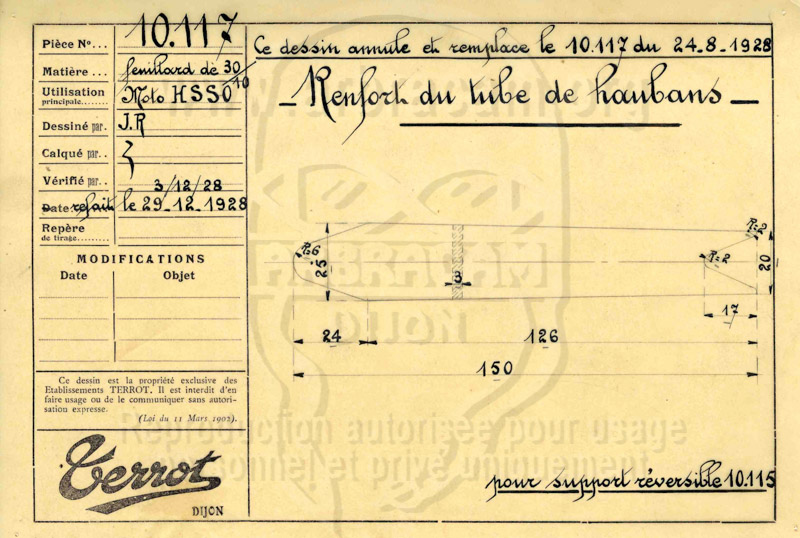 Pièce No... 10.117
Ce dessin annule et remplace le 10.117 du 24-8-1928
Matière ... feuillard de 30/10
Utilisation principale........ Moto HSSO
Renfort du tube de haubans
Dessiné par. J.R
Calqué par..
Vérifié par.. 3/12/28
Date refait le 29-12-1928
Repère de tirage.
MODIFICATIONS
Date Objet
R=6
25
3
R=2
R=2
20
17
24 126
150
Ce dessin est la propriété exclusive des
Etablissements TERROT. Il est interdit d'en
faire usage ou de le communiquer sans autori-
sation expresse.
(Loi du 11 Mars 1902).
Terrot
DIJON
pour support réversible 10.115
ABRACAM
DIJON
Reproduction autorisée pour usage
personnel et privé uniquement